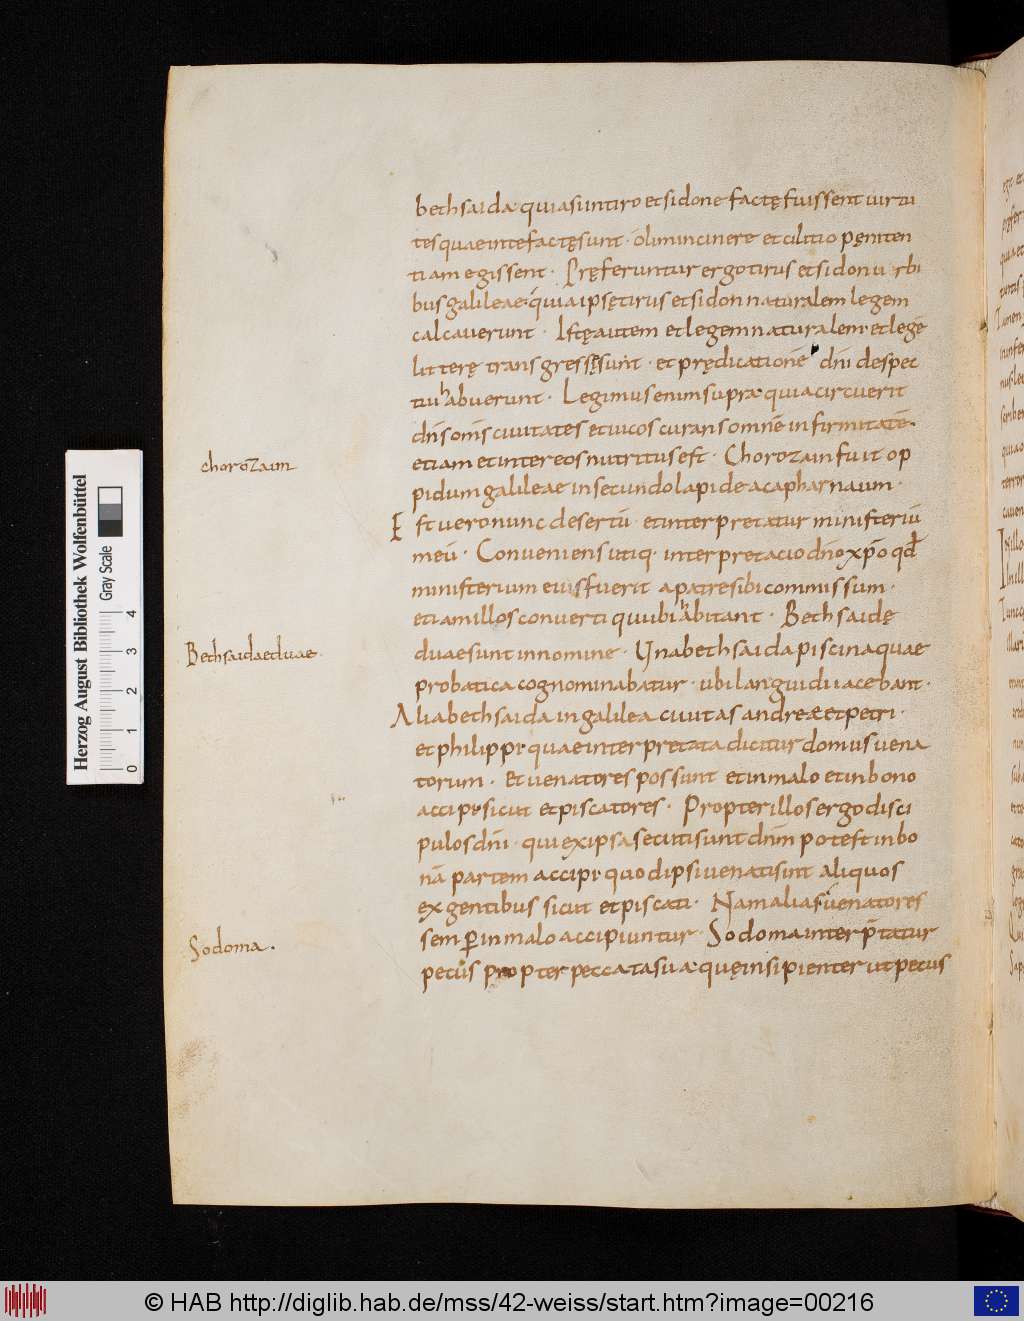 bethsaida· quia si in tiro et sidone factę fuissent uirtu
tes quae in te factę sunt· olim in cinere et cilitio pęniten
tiam egissent· Pręferuntur ergo tirus et sidon urbi
bus galileae· quia ipsę tirus et sidon naturalem legem
calcauerunt· Istę autem et legem naturalem· et legē
litterę transgressę sunt· et prędicationē dn̄i despec
tui habuerunt· Legimus enim supra· quia circuerit
dn̄s om̄s ciuitates et uicos curans omnē infirmitatē·
etiam et inter eos nutritus est· Chorozain fuit op
chorozaim
pidum galileae in secundo lapide a capharnaum·
Est uero nunc desertū· et interpretatur ministeriū
meū· Conueniens utiq· interpretacio dn̄o xp̄o qđ
ministerium eius fuerit a patre sibi commissum·
etiam illos conuerti qui ubi habitant· Bethsaidę
Bethsaidae duae·
duae sunt in nomine· Una bethsaida piscina quae
probatica cognominabatur· ubi languidi iacebant·
Alia bethsaida in galilea ciuitas andreæ et petri·
et philippi· quae interpretata dicitur domus uena
torum· et uenatores possunt et in malo et in bono
accipi· sicut et piscatores· Propter illos ergo disci
pulos dn̄i· qui ex ipsa secuti sunt dn̄m potest in bo
nā partem accipi· quod ipsi uenati sint aliquos
ex gentibus sicut et piscati· Nam alias uenatores
semp̄ in malo accipiuntur· Sodoma interp̄tatur
Sodoma·
pecus propter peccata sua· quę insipienter ut pecus
Herzog August Bibliothek Wolfenbüttel
Gray Scale
0 1 2 3 4
© HAB http://diglib.hab.de/mss/42-weiss/start.htm?image=00216